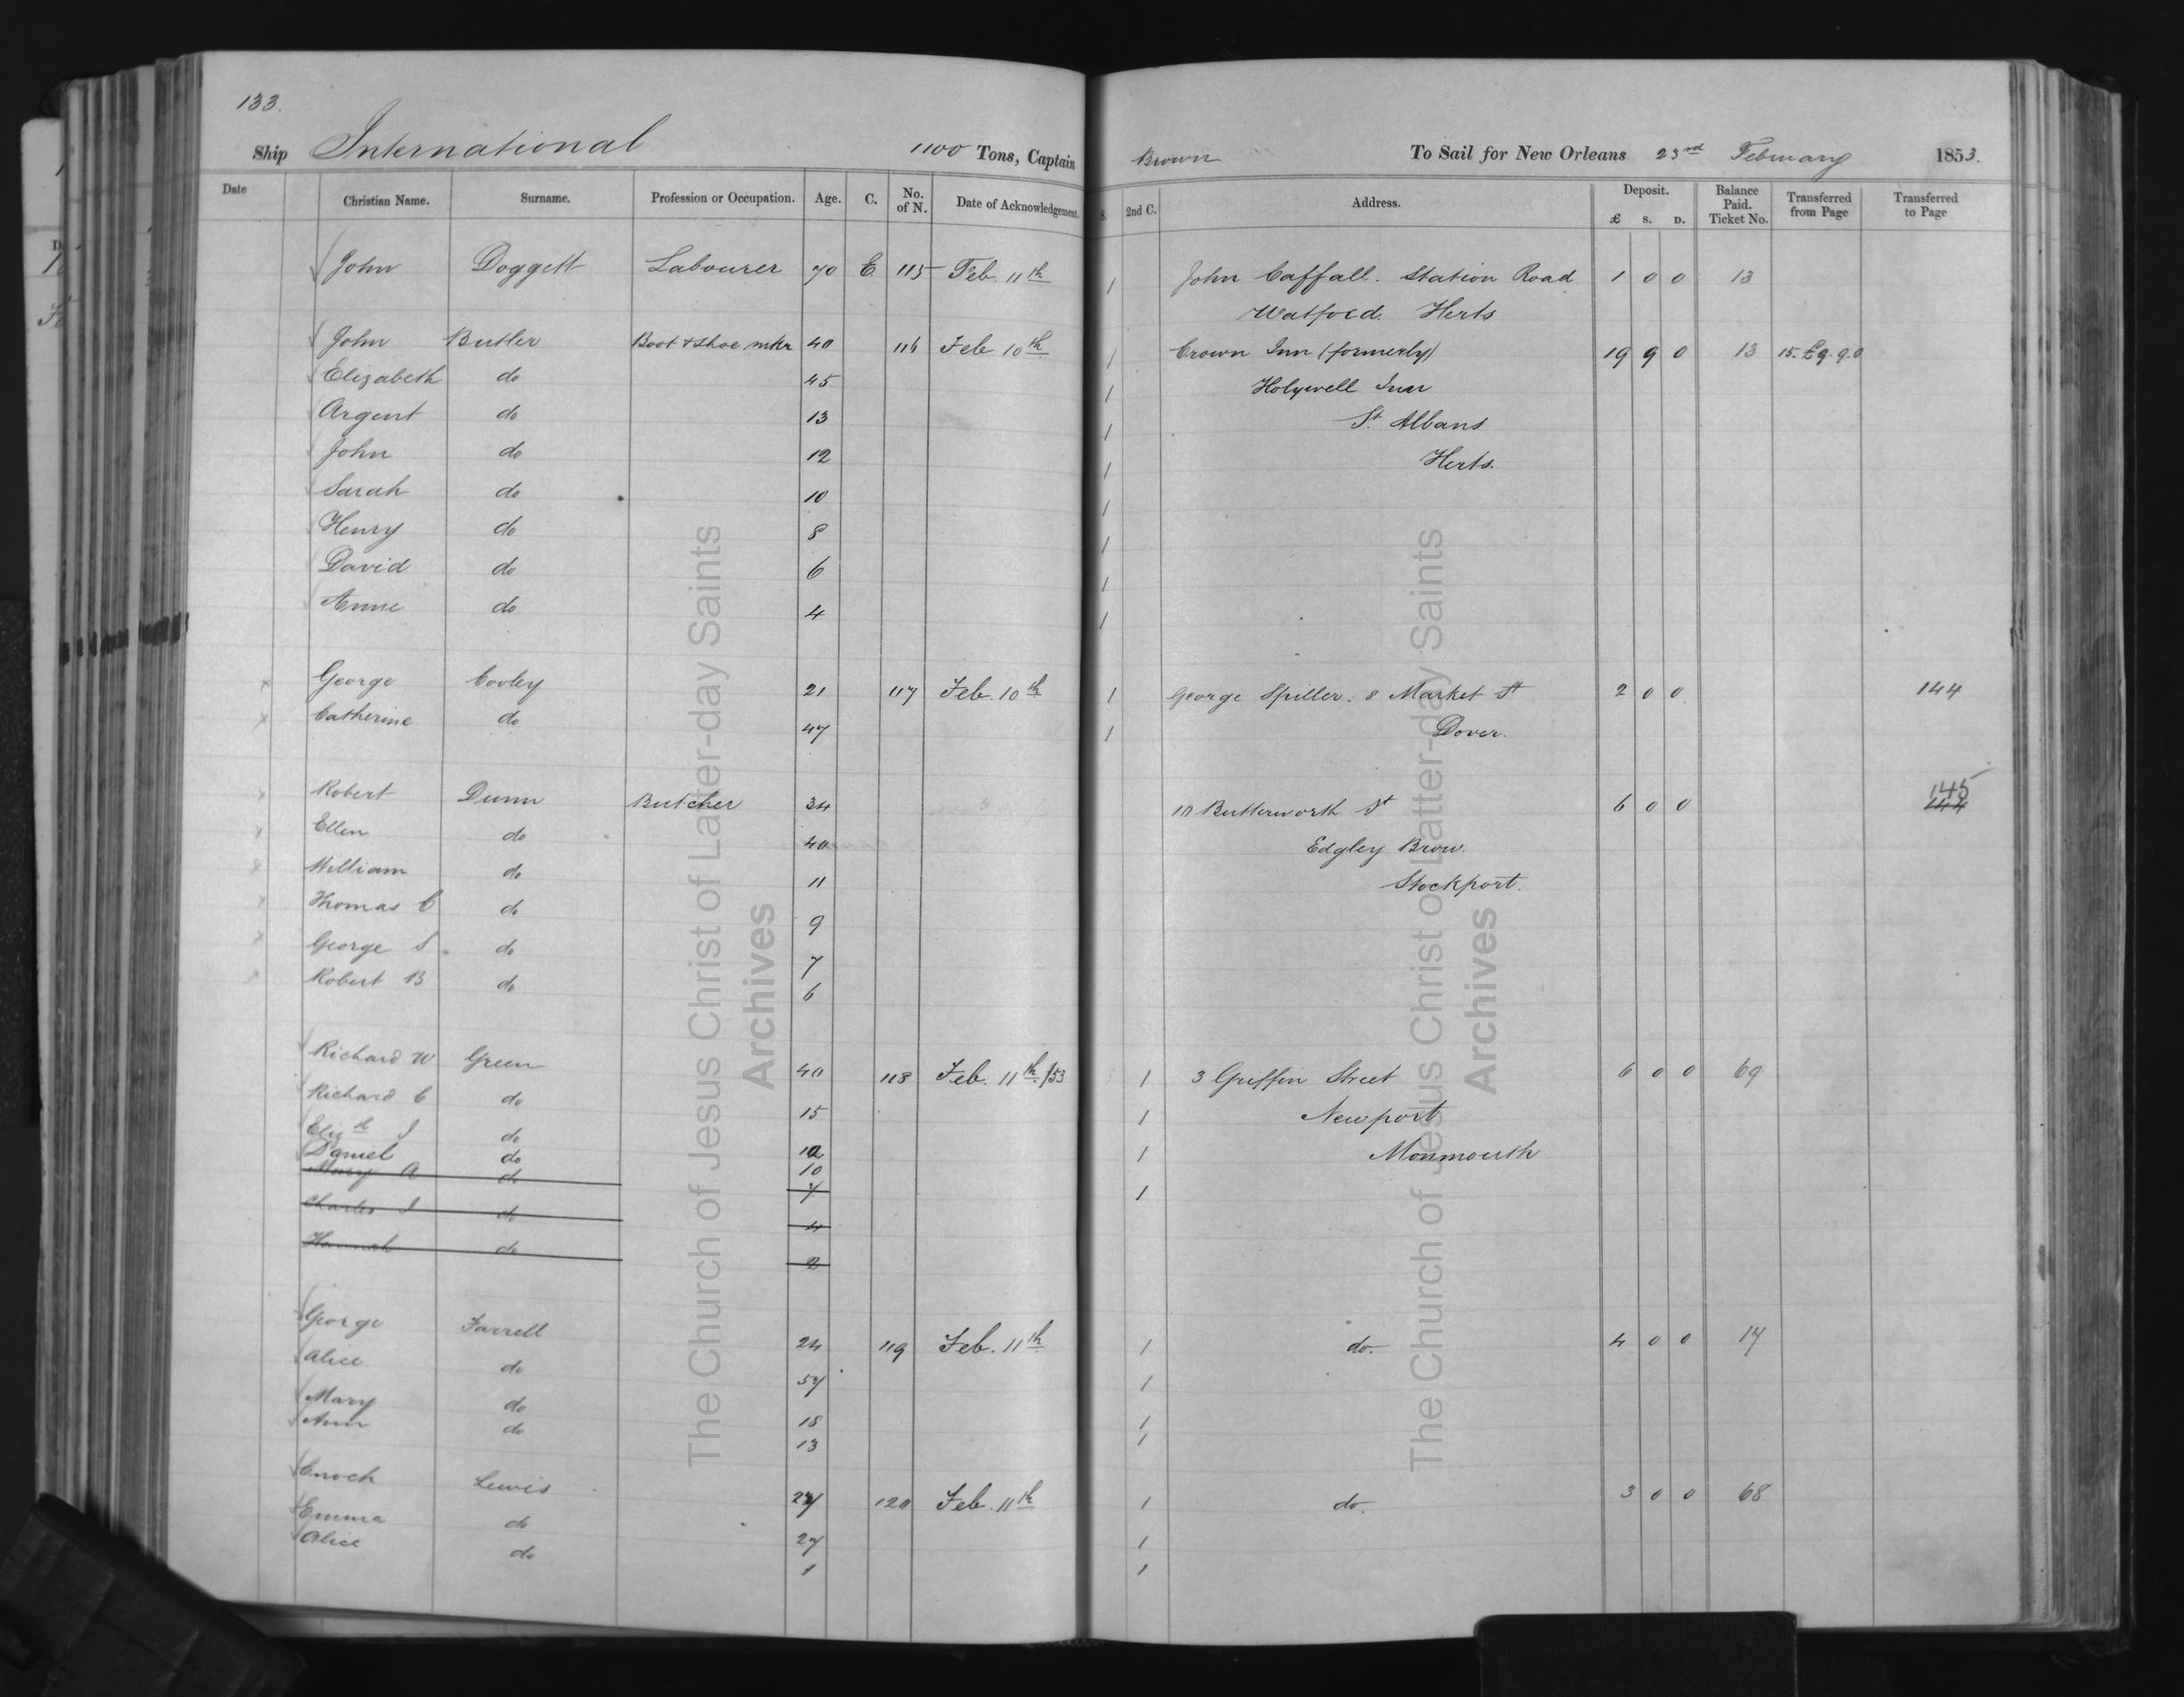 133.
Ship International 1100 Tons, Captain Brown To Sail for New Orleans 23rd February 1853.
Date Christian Name. Surname. Profession or Occupation. Age. C. No. of N. Date of Acknowledgement. S. 2nd C. Address. Deposit. £ S. D. Balance Paid. Ticket No. Transferred from Page Transferred to Page
John Doggett Labourer 70 E 115 Feb. 11th 1 John Caffall. Station Road 1 0 0 13
Watford. Herts
John Butler Boot & Shoe mkr 40 116 Feb 10th 1 Crown Inn (formerly) 19 9 0 13 15. £9.9.0
Elizabeth do 45 1 Holywell Inn
Argent do 13 1 St Albans
John do 12 1 Herts.
Sarah do 10 1
Henry do 8 1
David do 6 1
Anne do 4 1
x George Cooley 21 117 Feb. 10th 1 George Spiller. 8 Market St 2 0 0 144
x Catherine do 47 1 Dover.
x Robert Dunn Butcher 34 10 Butterworth St 6 0 0 145 144
x Ellen do 40 Edgley Brow.
x William do 11 Stockport.
x Thomas C do 9
x George S do 7
x Robert B do 6
Richard W Green 40 118 Feb. 11th /53 1 3 Griffin Street 6 0 0 69
Richard C do 15 1 Newport
Elizth J do 12 1 Monmouth
Daniel do 10
Mary A do 7 1
Charles J do 4
Hannah do 2
George Farrell 24 119 Feb. 11th 1 do. 4 0 0 17
Alice do 57 1
Mary do 18 1
Ann do 13 1
Enoch Lewis 27 120 Feb. 11th 1 do. 3 0 0 68
Emma do 27 1
Alice do 1 1
The Church of Jesus Christ of Latter-day Saints
Archives
The Church of Jesus Christ of Latter-day Saints
Archives